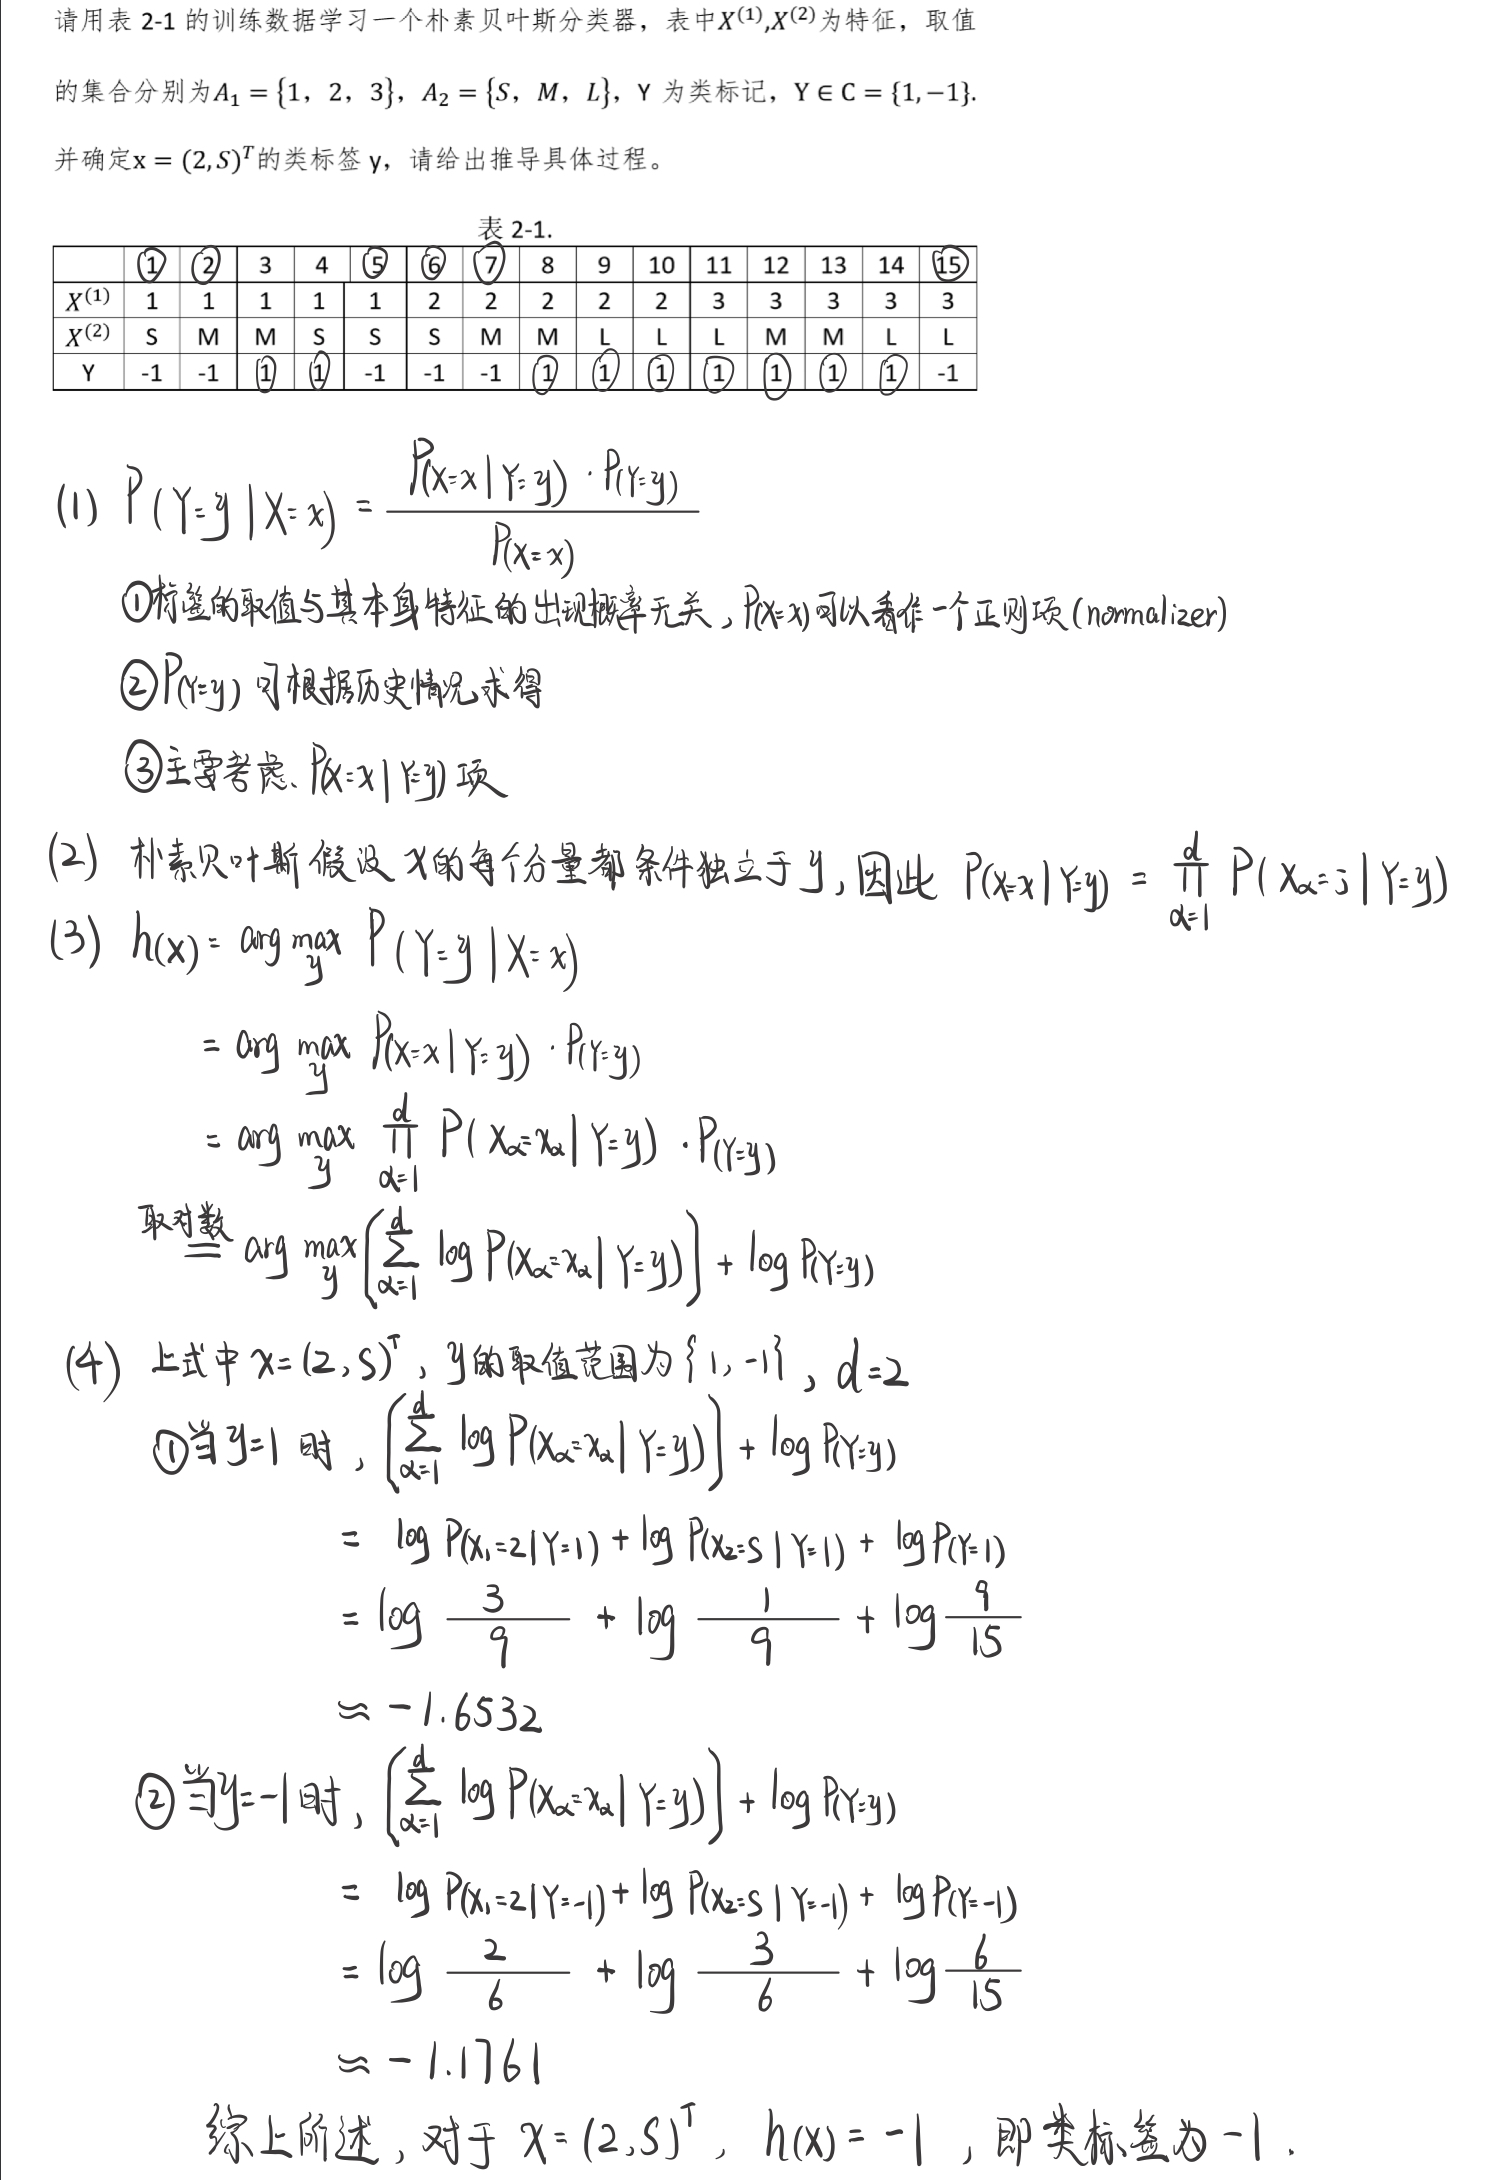 请用表 2-1 的训练数据学习一个朴素贝叶斯分类器，表中X⁽¹⁾,X⁽²⁾为特征，取值
的集合分别为A₁ = {1，2，3}，A₂ = {S，M，L}，Y 为类标记，Y ∈ C = {1,−1}.
并确定x = (2,S)ᵀ的类标签 y，请给出推导具体过程。
表 2-1.
1 2 3 4 5 6 7 8 9 10 11 12 13 14 15
X⁽¹⁾ 1 1 1 1 1 2 2 2 2 2 3 3 3 3 3
X⁽²⁾ S M M S S S M M L L L M M L L
Y -1 -1 1 1 -1 -1 -1 1 1 1 1 1 1 1 -1
(1) P(Y=y|X=x) = P(X=x|Y=y)·P(Y=y) / P(X=x)
①标签的取值与其本身特征的出现概率无关，P(X=x)可以看作一个正则项(normalizer)
②P(Y=y) 可根据历史情况求得
③主要考虑 P(X=x|Y=y) 项
(2) 朴素贝叶斯假设 x的每个分量都条件独立于y，因此 P(X=x|Y=y) = ∏_{α=1}^{d} P(Xα=j|Y=y)
(3) h(x) = arg max_y P(Y=y|X=x)
= arg max_y P(X=x|Y=y)·P(Y=y)
= arg max_y ∏_{α=1}^{d} P(Xα=xα|Y=y)·P(Y=y)
取对数 = arg max_y [∑_{α=1}^{d} log P(Xα=xα|Y=y)] + log P(Y=y)
(4) 上式中 x=(2,S)ᵀ，y的取值范围为{1,-1}，d=2
①当y=1时，[∑_{α=1}^{d} log P(Xα=xα|Y=y)] + log P(Y=y)
= log P(X₁=2|Y=1) + log P(X₂=S|Y=1) + log P(Y=1)
= log 3/9 + log 1/9 + log 9/15
≈ -1.6532
②当y=-1时，[∑_{α=1}^{d} log P(Xα=xα|Y=y)] + log P(Y=y)
= log P(X₁=2|Y=-1) + log P(X₂=S|Y=-1) + log P(Y=-1)
= log 2/6 + log 3/6 + log 6/15
≈ -1.1761
综上所述，对于 x=(2,S)ᵀ，h(x)=-1，即类标签为-1.